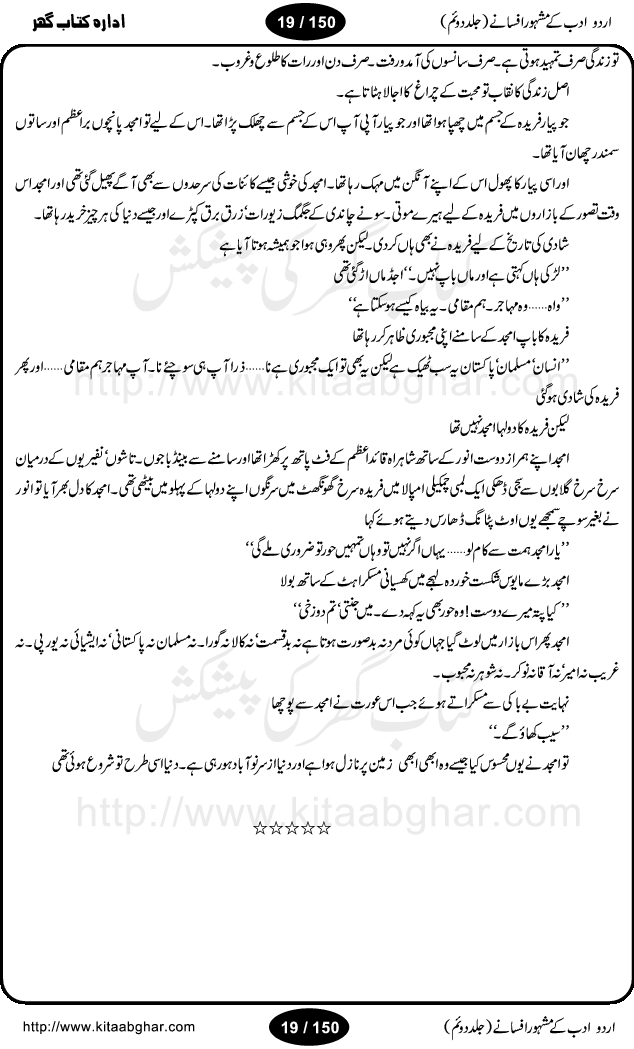 اردو ادب کے مشہور افسانے (جلد دوئم)
19 / 150
ادارہ کتاب گھر
تو زندگی صرف تمہید ہوتی ہے۔ صرف سانسوں کی آمد و رفت۔ صرف دن اور رات کا طلوع و غروب۔
اصل زندگی کا نقاب تو محبت کے چراغ کا اجالا ہٹاتا ہے۔
جو پیار فریدہ کے جسم میں چھپا ہوا تھا اور جو پیار آپی آپ اس کے جسم سے چھلک پڑا تھا۔ اس کے لیے تو امجد پانچوں براعظم اور ساتوں
سمندر چھان آیا تھا۔
اور اسی پیار کا پھول اس کے اپنے آنگن میں مہک رہا تھا۔ امجد کی خوشی جیسے کائنات کی سرحدوں سے بھی آگے پھیل گئی تھی اور امجد اس
وقت تصور کے بازاروں میں فریدہ کے لیے ہیرے موتی۔ سونے چاندی کے جگمگ زیورات‘ زرق برق کپڑے اور جیسے دنیا کی ہر چیز خرید رہا تھا۔
شادی کی تاریخ کے لیے فریدہ نے بھی ہاں کر دی۔ لیکن پھر وہی ہوا جو ہمیشہ ہوتا آیا ہے
’’لڑکی ہاں کہتی ہے اور ماں باپ نہیں۔‘‘ اجڈ ماں اڑ گئی تھی
’’واہ……وہ مہاجر۔ ہم مقامی۔ یہ بیاہ کیسے ہو سکتا ہے‘‘
فریدہ کا باپ امجد کے سامنے اپنی مجبوری ظاہر کر رہا تھا
’’انسان‘ مسلمان‘ پاکستان یہ سب ٹھیک ہے لیکن یہ بھی تو ایک مجبوری ہے نا……ذرا آپ ہی سوچئے نا۔ آپ مہاجر ہم مقامی……اور پھر
فریدہ کی شادی ہو گئی
لیکن فریدہ کا دولہا امجد نہیں تھا
امجد اپنے ہمراز دوست انور کے ساتھ شاہراہ قائد اعظم کے فٹ پاتھ پر کھڑا تھا اور سامنے سے بینڈ باجوں۔ تاشوں‘ نفیریوں کے درمیان
سرخ سرخ گلابوں سے سجی ڈھکی ایک لمبی چمکیلی امپالا میں فریدہ سرخ گھونگھٹ میں سرنگوں اپنے دولہا کے پہلو میں بیٹھی تھی۔ امجد کا دل بھر آیا تو انور
نے بغیر سوچے سمجھے یوں اوٹ پٹانگ ڈھارس دیتے ہوئے کہا
’’یار امجد ہمت سے کام لو……یہاں اگر نہیں تو وہاں تمہیں حور تو ضروری ملے گی‘‘
امجد بڑے مایوس شکست خوردہ لہجے میں کھسیانی مسکراہٹ کے ساتھ بولا
’’کیا پتہ میرے دوست! وہ حور بھی یہ کہہ دے۔ میں جنتی‘ تم دوزخی‘‘
امجد پھر اس بازار میں لوٹ گیا جہاں کوئی مرد نہ بدصورت ہوتا ہے نہ بدقسمت‘ نہ کالا نہ گورا۔ نہ مسلمان نہ پاکستانی‘ نہ ایشیائی نہ یورپی۔ نہ
غریب نہ امیر‘ نہ آقا نہ نوکر۔ نہ شوہر نہ محبوب۔
نہایت بے باکی سے مسکراتے ہوئے جب اس عورت نے امجد سے پوچھا
’’سیب کھاؤ گے۔‘‘
تو امجد نے یوں محسوس کیا جیسے وہ ابھی ابھی زمین پر نازل ہوا ہے اور دنیا از سر نو آباد ہو رہی ہے۔ دنیا اسی طرح تو شروع ہوئی تھی
☆☆☆☆☆
کتاب گھر کی پیشکش
http://www.kitaabghar.com
کتاب گھر کی پیشکش
http://www.kitaabghar.com
اردو ادب کے مشہور افسانے (جلد دوئم)
19 / 150
http://www.kitaabghar.com